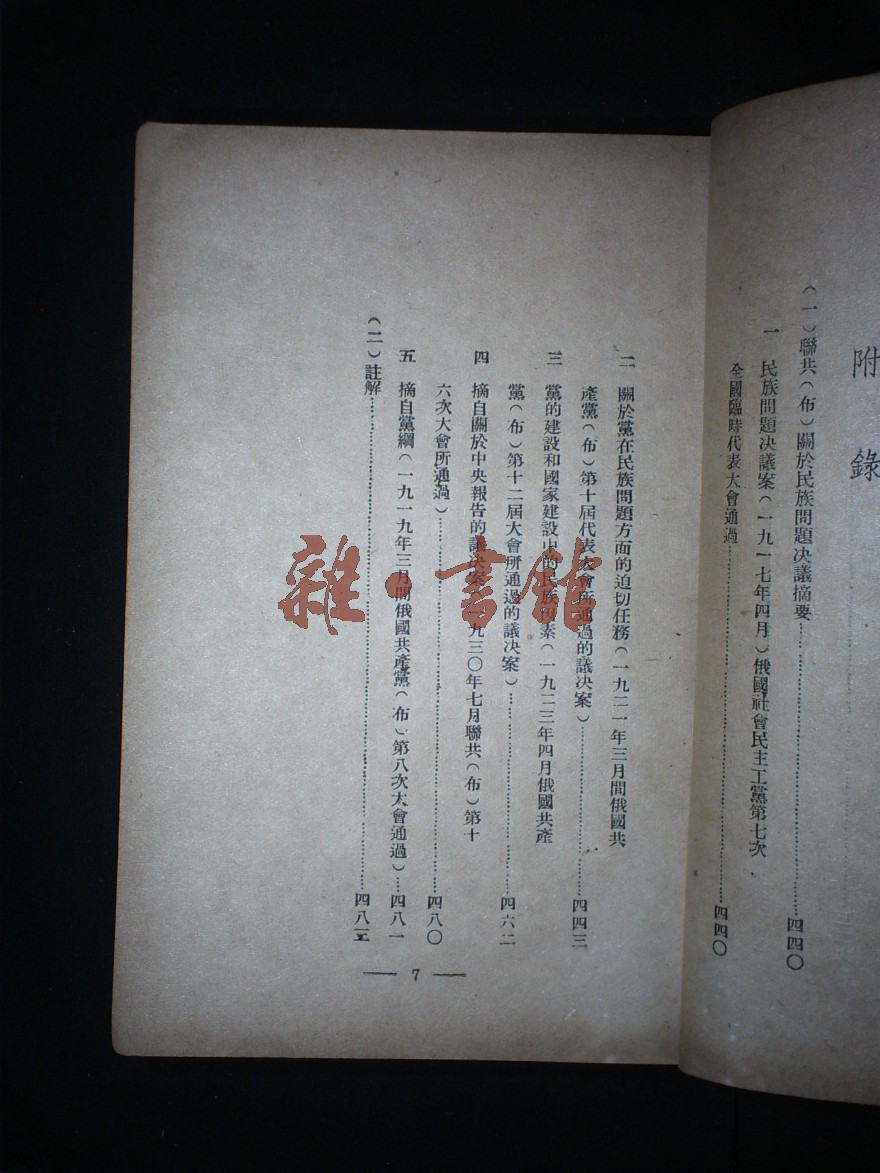 附錄
（一）聯共（布）關於民族問題決議摘要……四四〇
一　民族問題決議案（一九一七年四月）俄國社會民主工黨第七次
全國臨時代表大會通過……四四〇
二　關於黨在民族問題方面的迫切任務（一九二一年三月間俄國共
產黨（布）第十屆代表大會所通過的議決案）……四四三
三　黨的建設和國家建設中的民族因素（一九二三年四月俄國共產
黨（布）第十二屆大會所通過的議決案）……四六二
四　摘自關於中央報告的議決案（一九三〇年七月聯共（布）第十
六次大會所通過）……四八〇
五　摘自黨綱（一九一九年三月間俄國共產黨（布）第八次大會通過）……四八一
（二）註解……四八
— 7 —
雜·書館